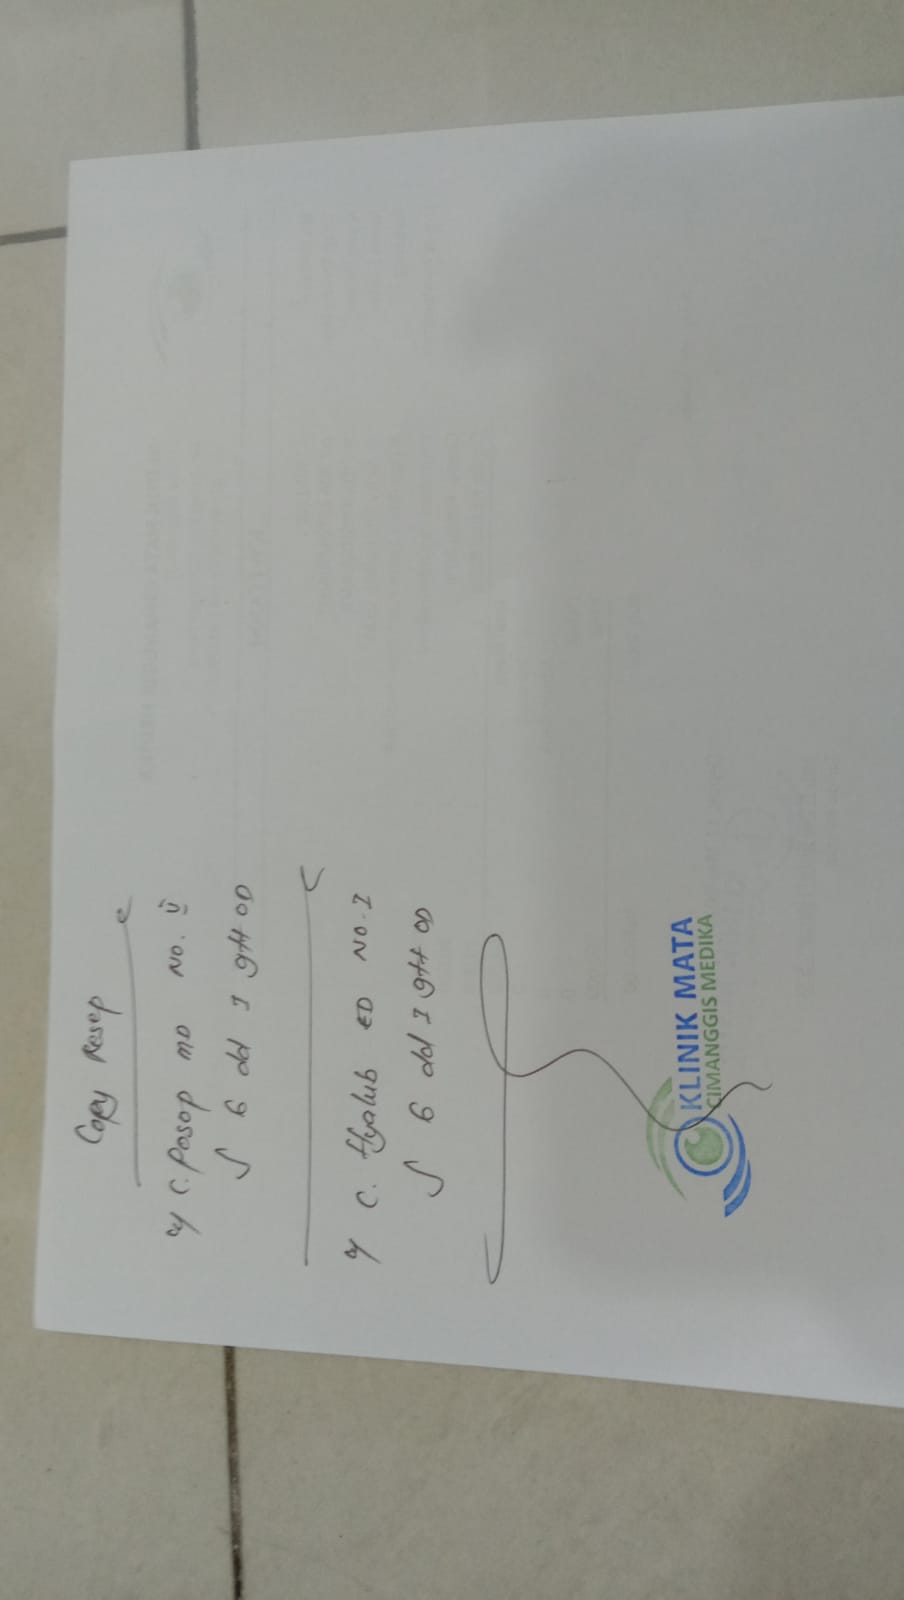 Copy Resep
R/ C. Posop MD No. II
S 6 dd I gtt OD
R/ C. Hyalub ED No. I
S 6 dd I gtt OD
KLINIK MATA
CIMANGGIS MEDIKA